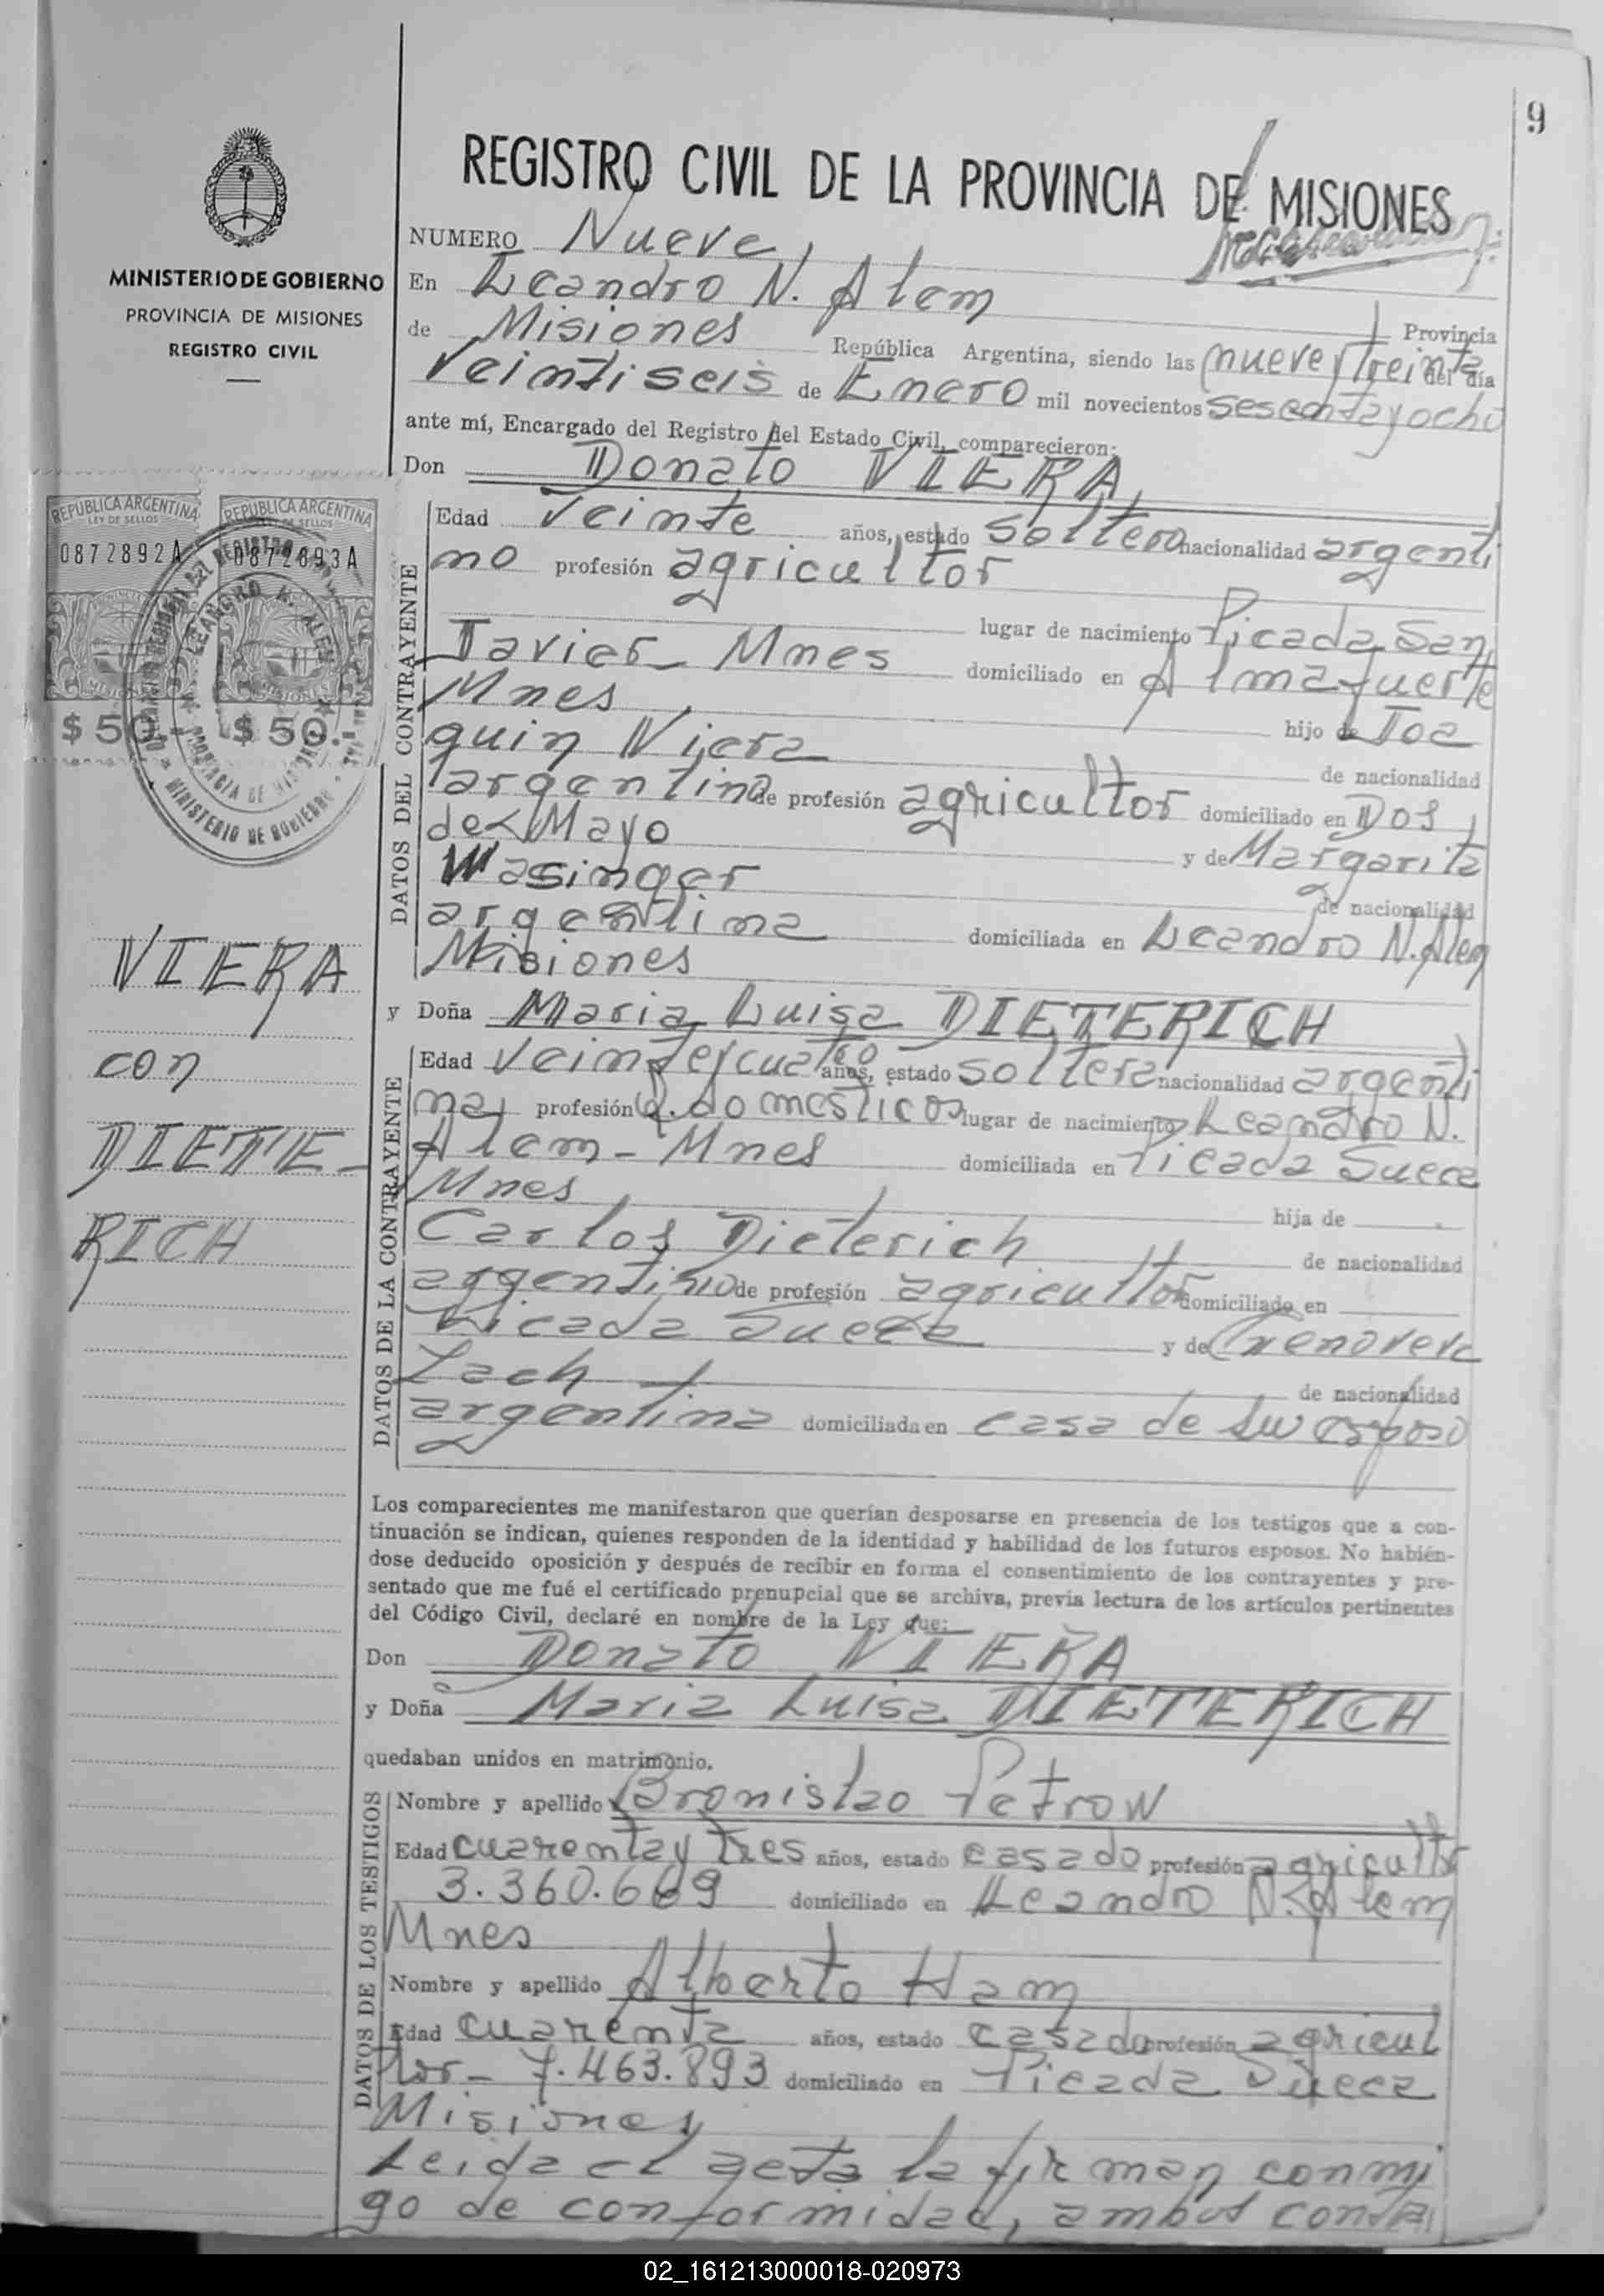 9
REGISTRO CIVIL DE LA PROVINCIA DE MISIONES
MINISTERIO DE GOBIERNO
PROVINCIA DE MISIONES
REGISTRO CIVIL
NUMERO Nueve
En Leandro N. Alem
Provincia
de Misiones República Argentina, siendo las nueve y treinta del día
Veintiseis de Enero mil novecientos sesenta y ocho
ante mí, Encargado del Registro del Estado Civil, comparecieron:
Don Donato VIERA
REPUBLICA ARGENTINA
LEY DE SELLOS
0872892A
$ 50.-
REPUBLICA ARGENTINA
LEY DE SELLOS
0872893A
$ 50.-
LEANDRO N. ALEM
PROVINCIA DE MISIONES
MINISTERIO DE GOBIERNO
VIERA
con
DIETE-
RICH
DATOS DEL CONTRAYENTE
Edad Veinte años, estado soltero nacionalidad argenti
no profesión agricultor
lugar de nacimiento Picada San
Javier - Mnes domiciliado en Almafuerte
Mnes hijo de Joa
quin Viera de nacionalidad
argentina de profesión agricultor domiciliado en Dos
de Mayo y de Margarita
Wasinger de nacionalidad
argentina domiciliada en Leandro N. Alem
Misiones
y Doña Maria Luisa DIETERICH
DATOS DE LA CONTRAYENTE
Edad veinteycuatro años, estado soltera nacionalidad argenti
na, profesión q. domesticos lugar de nacimiento Leandro N.
Alem - Mnes domiciliada en Picada Sueca
Mnes hija de
Carlos Dieterich de nacionalidad
argentino de profesión agricultor domiciliado en
Picada Sueca y de Genoveva
Zach de nacionalidad
argentina domiciliada en casa de su esposo
Los comparecientes me manifestaron que querían desposarse en presencia de los testigos que a con-
tinuación se indican, quienes responden de la identidad y habilidad de los futuros esposos. No habién-
dose deducido oposición y después de recibir en forma el consentimiento de los contrayentes y pre-
sentado que me fué el certificado prenupcial que se archiva, previa lectura de los artículos pertinentes
del Código Civil, declaré en nombre de la Ley que:
Don Donato VIERA
y Doña Maria Luisa DIETERICH
quedaban unidos en matrimonio.
DATOS DE LOS TESTIGOS
Nombre y apellido Bronislao Petrow
Edad cuarenta y tres años, estado casado profesión agricultor
3.360.669 domiciliado en Leandro N. Alem
Mnes
Nombre y apellido Alberto Ham
Edad cuarenta años, estado casado profesión agricul
tor - 7.463.893 domiciliado en Picada Sueca
Misiones
Leida el acta la firman conmi
go de conformidad, ambos contra
02_161213000018-020973